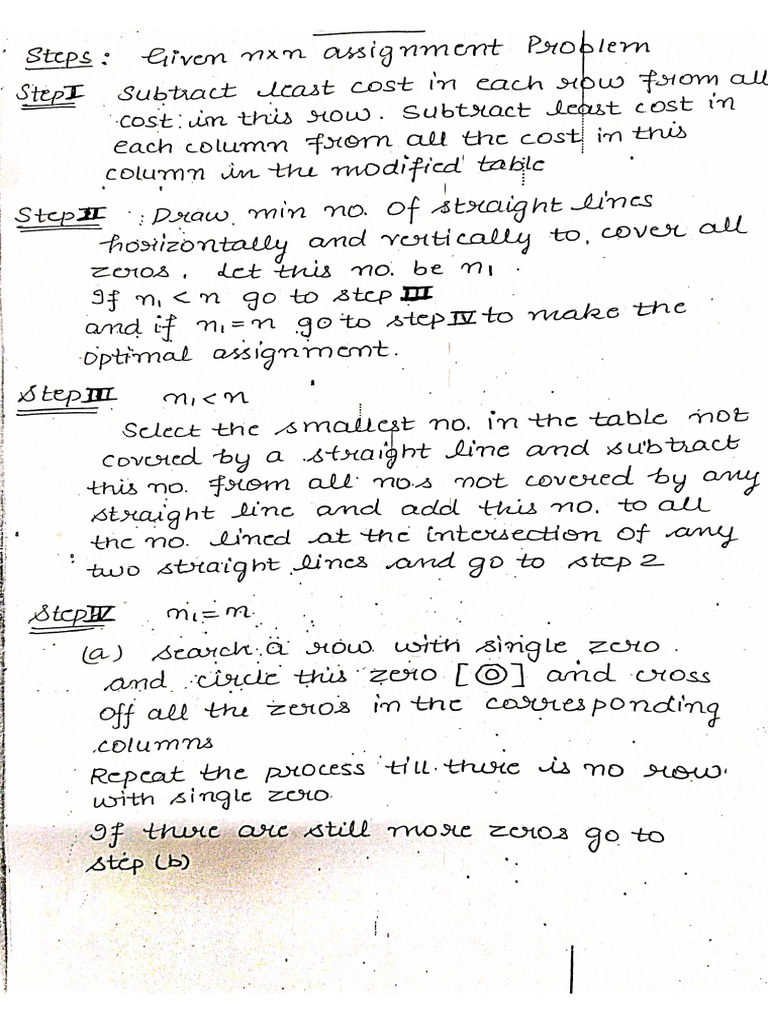 Steps: Given n×n assignment Problem
Step I Subtract least cost in each row from all
cost in this row. Subtract least cost in
each column from all the cost in this
column in the modified table
Step II : Draw min no. of straight lines
horizontally and vertically to cover all
zeros. Let this no. be n₁.
If n₁ < n go to step III
and if n₁ = n go to step IV to make the
optimal assignment.
Step III n₁ < n
Select the smallest no. in the table not
covered by a straight line and subtract
this no. from all nos not covered by any
straight line and add this no. to all
the no. lined at the intersection of any
two straight lines and go to step 2
Step IV n₁ = n
(a) Search a row with single zero.
and circle this zero [⓪] and cross
off all the zeros in the corresponding
columns
Repeat the process till there is no row
with single zero.
If there are still more zeros go to
step (b)